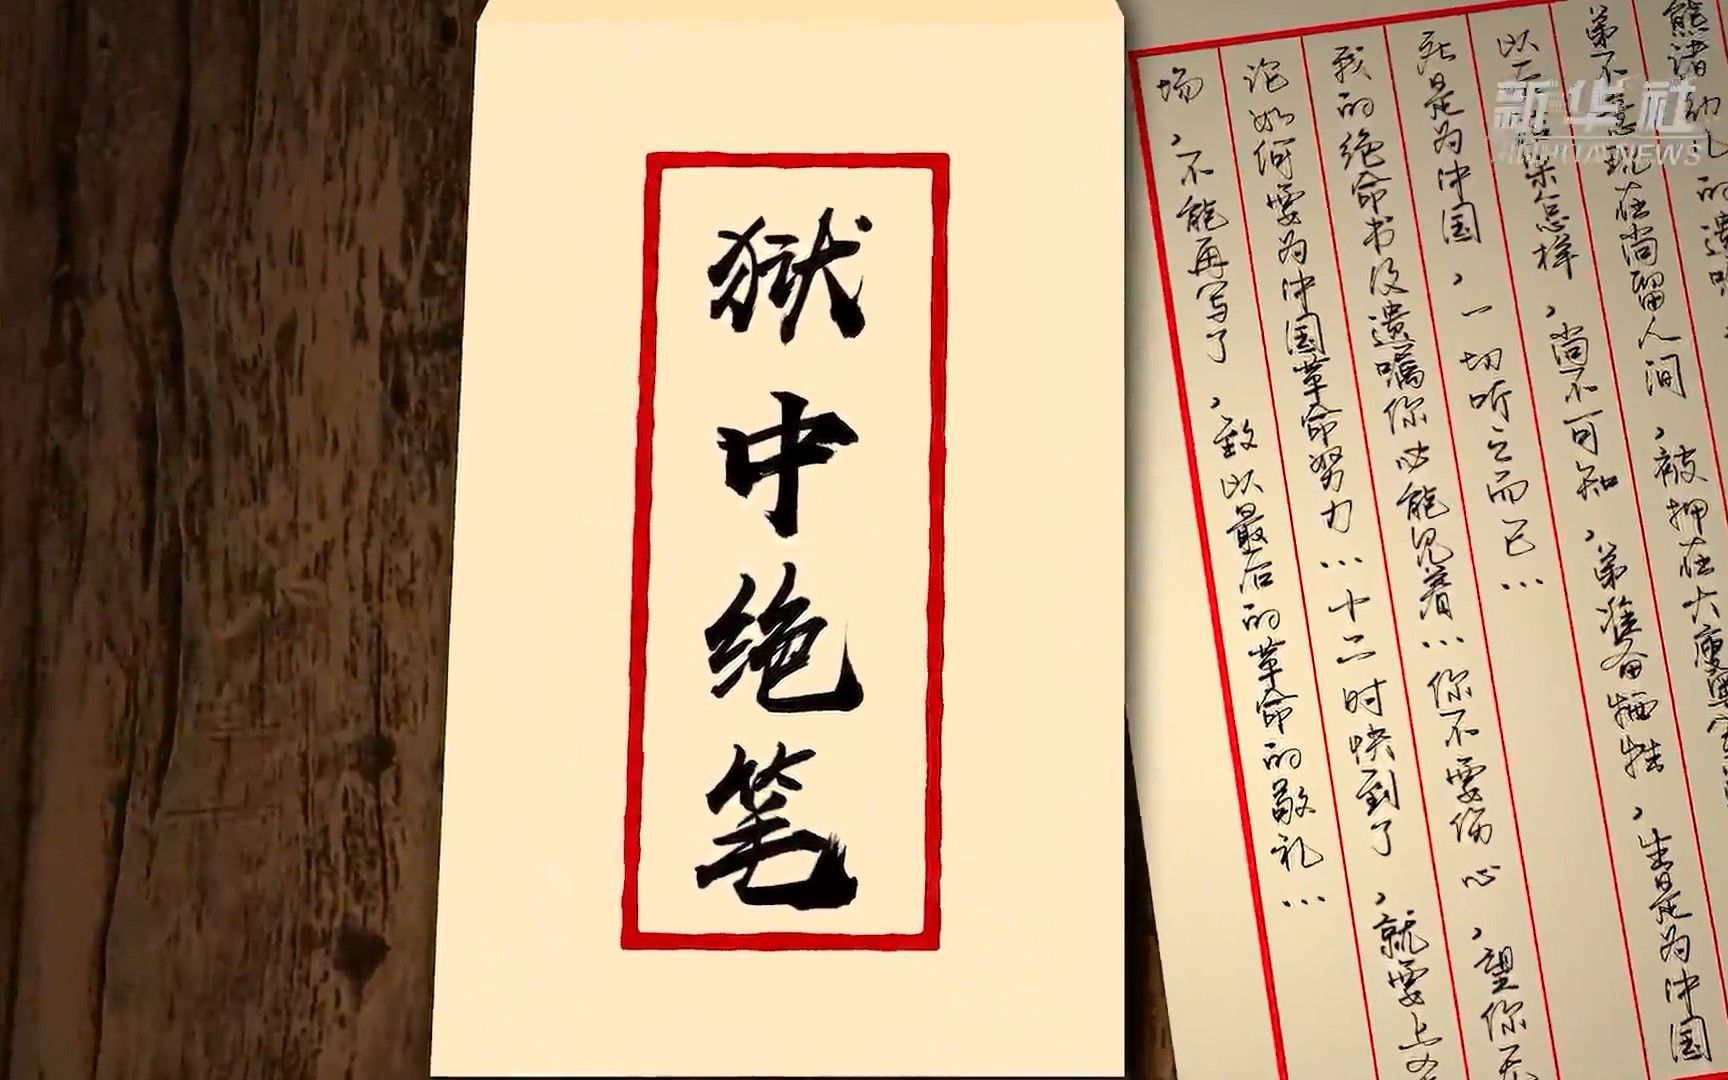 狱中绝笔
新华社
XINHUA NEWS
的遗嘱
弟不意现在尚留人间，被押在大庾
以后结果怎样，尚不可知，弟准备牺牲，生是为中国
死是为中国，一切听之而已…
我的绝命书及遗嘱你必能见着…你不要伤心，望你无
论如何要为中国革命努力…十二时快到了，就要上
场，不能再写了，致以最后的革命的敬礼…